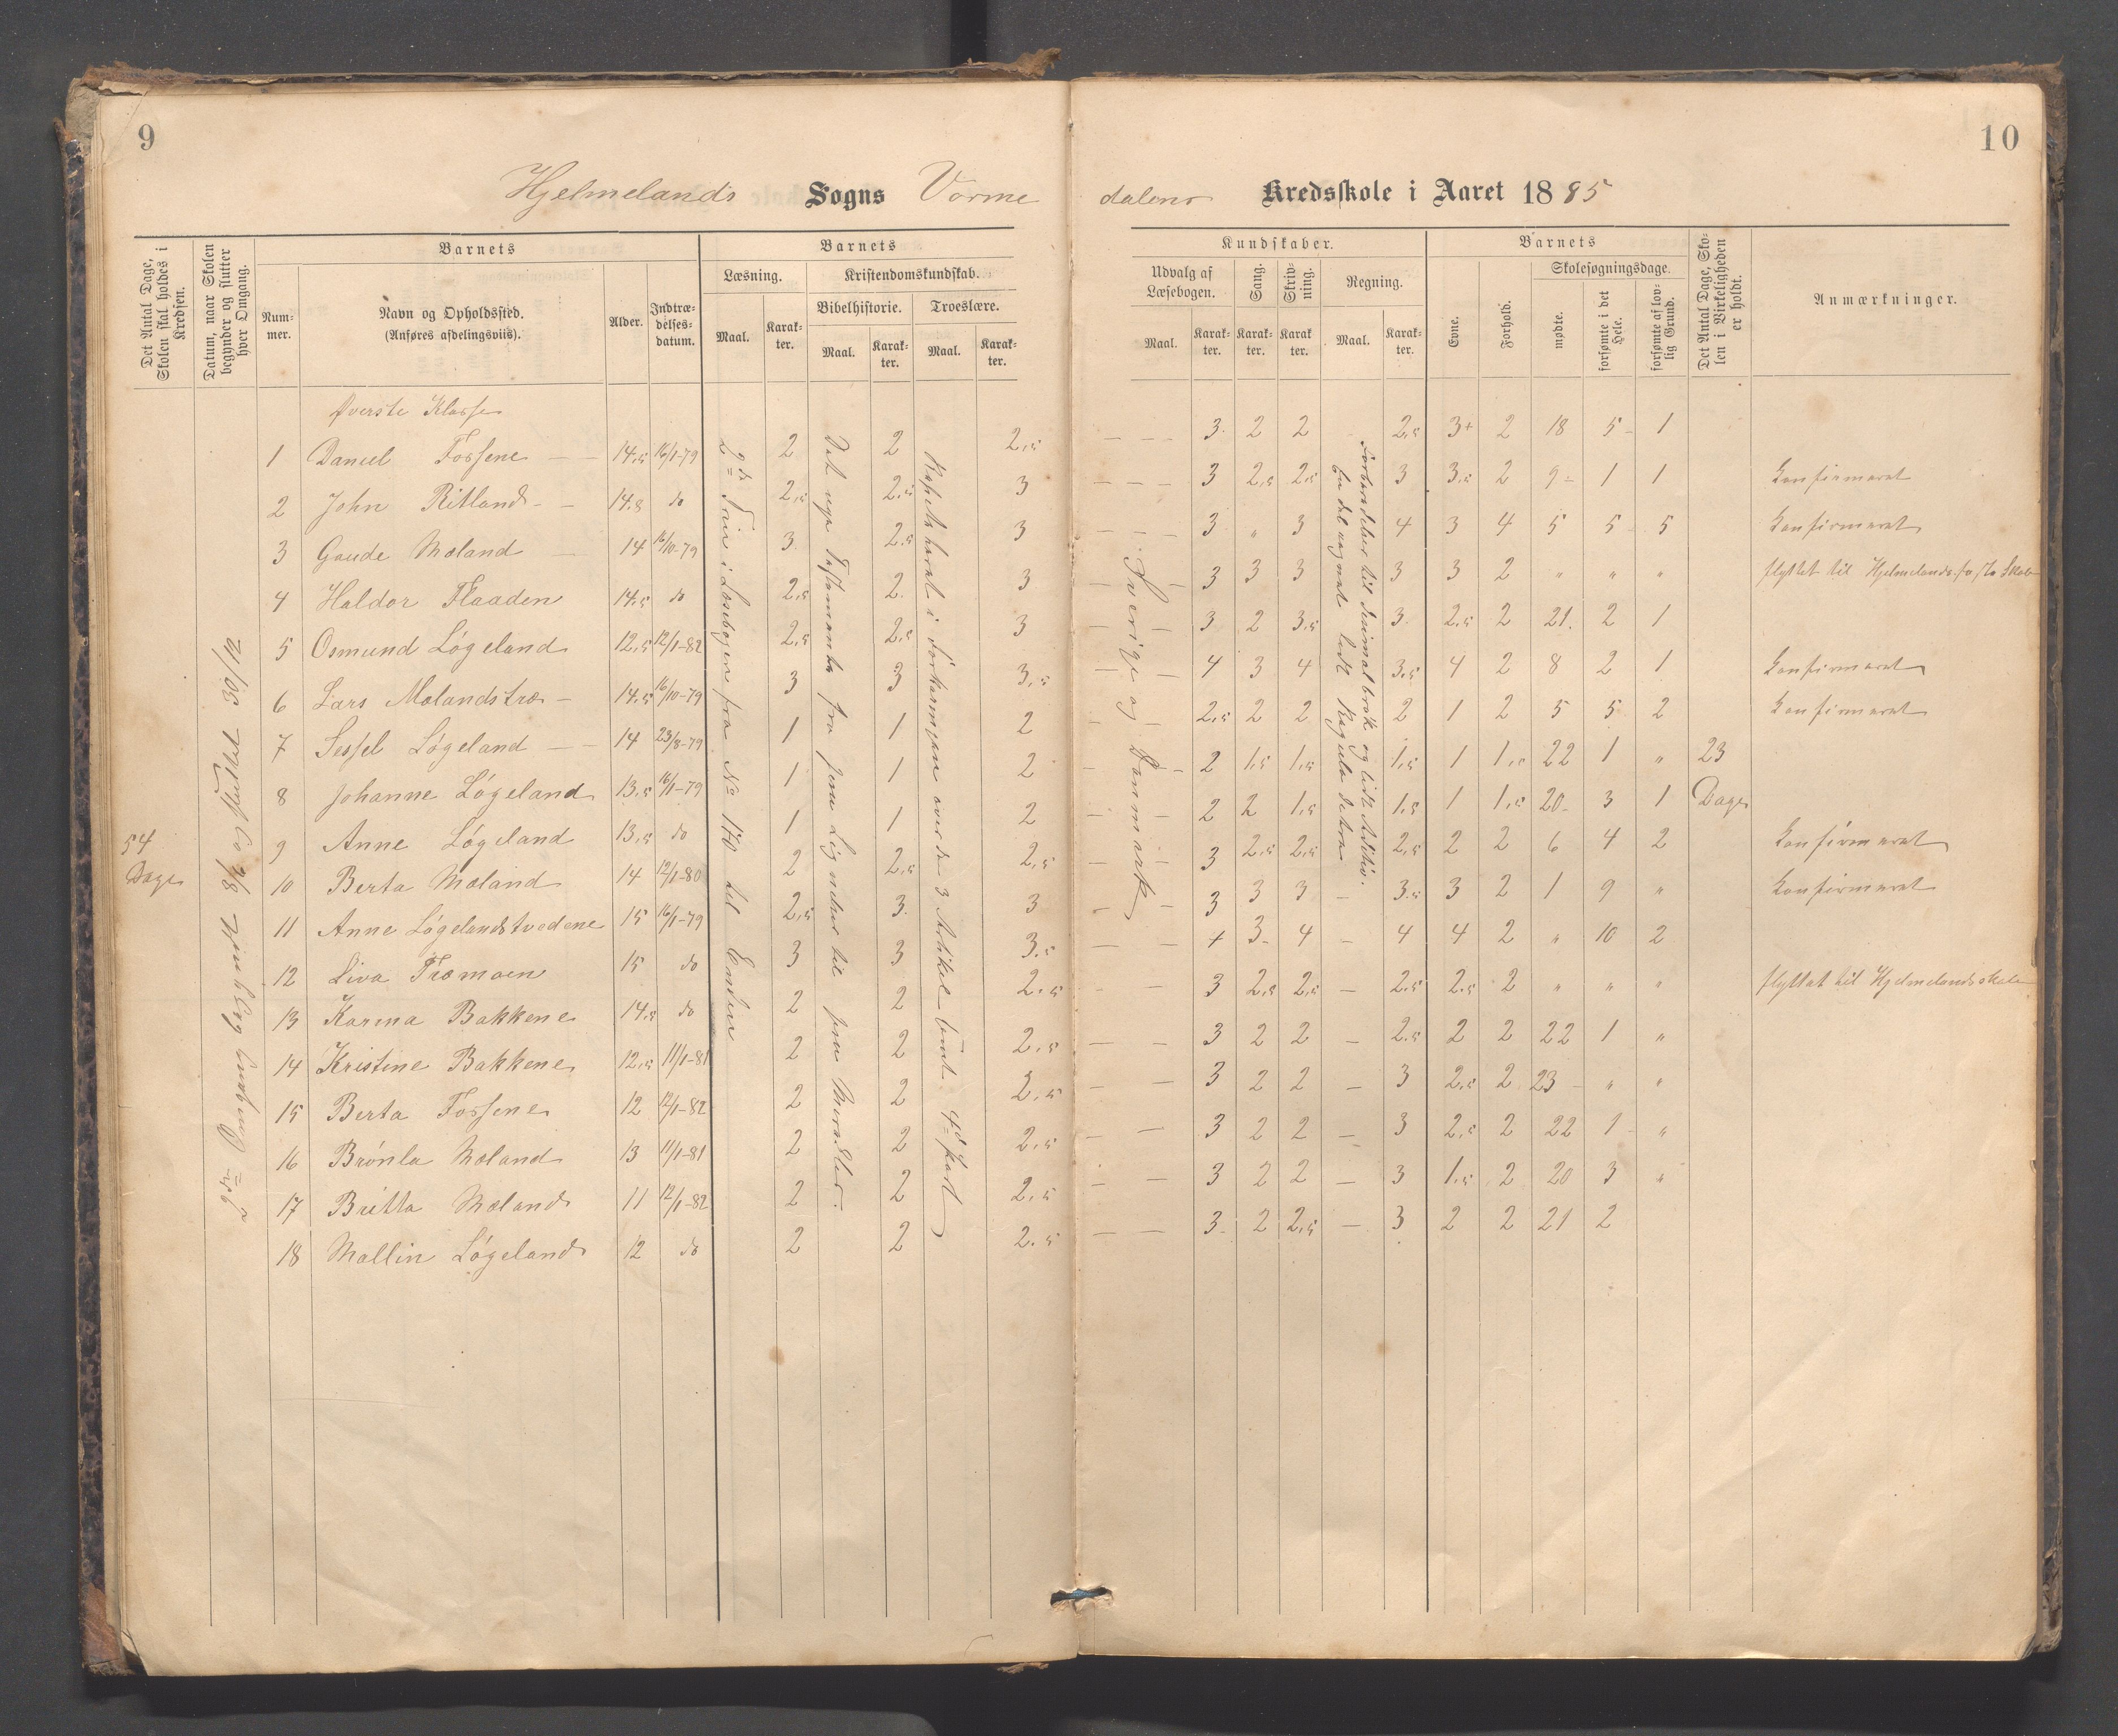 9
10
Hjelmelands Sogns Vorme dalens Kredsskole i Aaret 1885
Det Antal Dage, Skolen skal holdes i Kredsen.
Datum, naar Skolen begynder og slutter hver Omgang.
Barnets
Num-mer.
Navn og Opholdssted.
(Anføres afdelingsviis).
Alder.
Indtræ-delses-datum.
Barnets
Læsning.
Maal.
Karak-ter.
Kristendomskundskab.
Bibelhistorie.
Maal.
Karak-ter.
Troeslære.
Maal.
Karak-ter.
Kundskaber.
Udvalg af Læsebogen.
Maal.
Karak-ter.
Sang.
Karak-ter.
Skriv-ning.
Karak ter.
Regning.
Maal.
Karak-ter.
Barnets
Evne.
Forhold.
Skolesøgningsdage.
mødte.
forsømte i det Hele.
forsømte af lov-lig Grund.
Det Antal Dage, Sko-len i Virkeligheden er holdt.
Anmærkninger.
Øverste Klasse
1 Daniel Fossene 14,5 16/1-79 2 2 2,5 3 2 2 2,5 3+ 2 18 5 1
2 John Ritland 14,8 do 2,5 2,5 3 3 2,5 2,5 3 3,5 2 9 1 1 Konfirmeret
3 Goude Mæland 14 16/10-79 3 2,5 3 3 " 3 4 3 4 5 5 5 Konfirmeret
4 Haldor Flaaden 14,5 do 2,5 2 3 3 3 3 3 3 2 " " " flyttet til Hjelmelands faste Skole
5 Osmund Løgeland 12,5 12/1-82 2,5 2,5 3 3 2 3,5 3 2,5 2 21 2 1
6 Lars Mælandstræ 14,5 16/10-79 3 3 3,5 4 3 4 3,5 4 2 8 2 1 Konfirmeret
7 Sessel Løgeland 14 23/8-79 1 1 2 2,5 2 2 2 1 2 5 5 2 Konfirmeret
8 Johanne Løgeland 13,5 16/1-79 1 1 2 2 1,5 1,5 1,5 1 1,5 22 1 " 23
9 Anne Løgeland 13,5 do 1 1 2 2 2 1,5 1,5 1 1,5 20 3 1 Dage
10 Berta Mæland 14 12/1-80 2 2,5 2,5 3 2,5 2,5 2,5 2 2 6 4 2 Konfirmeret
11 Anne Løgelandstvedene 15 16/1-79 2,5 3 3 3 3 3 3,5 3 2 1 9 " Konfirmeret
12 Liva Træmoen 15 do 3 3 3,5 4 3 4 4 4 2 " 10 2
13 Karina Bakkene 14,5 do 2 2 2,5 3 2,5 2,5 2,5 2,5 2 " " " flyttet til Hjelmelandsskole
14 Kristine Bakkene 12,5 11/1-81 2 2 2,5 3 2 2 2,5 2 2 22 1 "
15 Berta Fossene 12 12/1-82 2 2 2,5 3 2 2 3 2,5 2 23 " "
16 Brønla Mæland 13 11/1-81 2 2 2,5 3 2 2 3 2,5 2 22 1 "
17 Britta Mæland 11 12/1-82 2 2 2,5 3 2 2 3 1,5 2 20 3 "
18 Mallin Løgeland 12 do 2 2 2,5 3 2 2,5 3 2 2 21 2
54
Dage
Trin i Læsebogen fra No 170 til Enden
Det nye Testamente fra Jesu Lignelser til Jesu Mirakler.
over den 3 Artikel
Sverige og Danmark